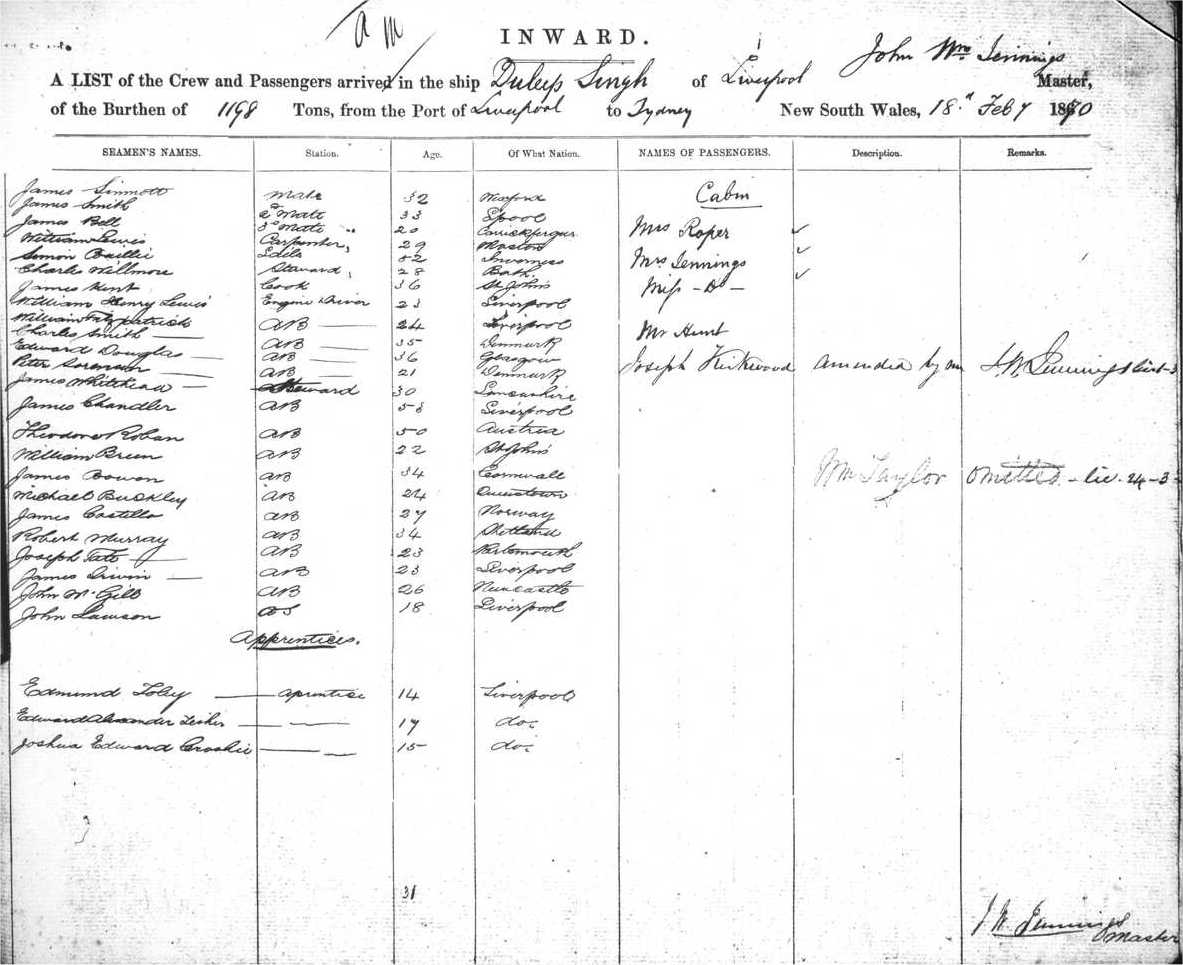 a m
INWARD.
John Wm Jennings
A LIST of the Crew and Passengers arrived in the ship Duleep Singh of Liverpool Master,
of the Burthen of 1198 Tons, from the Port of Liverpool to Sydney New South Wales, 18 Feby 1870
SEAMEN'S NAMES. Station. Age. Of What Nation. NAMES OF PASSENGERS. Description. Remarks.
James Sinnott Mate 32 Wexford Cabin
James Smith 2d Mate 33 Lpool
James Bell 3d Mate 20 Mrs Roper
William Lewis Carpenter 29
Simon Baillie 52 Inverness Mrs Jennings
Charles Willmore Steward 28 Bath
James Kent Cook 36 St Johns Miss -Do-
William Henry Lewis Engine Driver 23 Liverpool
William Fitzpatrick AB 24 Liverpool Mr Hunt
Charles Smith AB 35 Denmark
Edward Douglas AB 36 Glasgow Joseph Kirkwood amended by me J. W. Jennings
Peter Sorensen AB 21 Denmark
James Whitehead Steward 30 Lancashire
James Chandler AB 53 Liverpool
Theodore Roban AB 50 Austria
William Breen AB 22 St Johns
James Bowen AB 34 Cornwall Wm Taylor Omitted - lic. 24-3-
Michael Buckley AB 24 Queenstown
James Costello AB 27 Norway
Robert Murray AB 34 Shetland
Joseph Tate AB 23 Portsmouth
James Irwin AB 23 Liverpool
John McGill AB 26 Newcastle
John Lawson OS 18 Liverpool
Apprentices.
Edmund Foley Aprentice 14 Liverpool
Edward Alexander 17 do.
Joshua Edward Croshie 15 do.
31
J W Jennings
Master